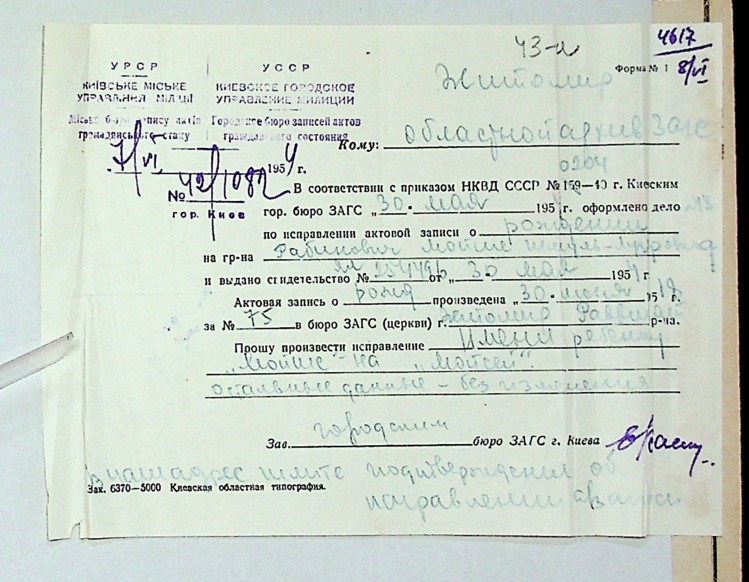 43-я
4617
8/VI
Форма № 1
УРСР
КИЇВСЬКЕ МІСЬКЕ
УПРАВЛІННЯ МІЛІЦІЇ
Міське бюро запису актів
громадянського стану
УССР
КИЕВСКОЕ ГОРОДСКОЕ
УПРАВЛЕНИЕ МИЛИЦИИ
Городское бюро записей актов
гражданского состояния
7/VI 1954 г.
№ 42/1082
гор. Киев
Житомир
Кому: областной архив Загс
0204
В соответствии с приказом НКВД СССР № 159—40 г. Киевским
гор. бюро ЗАГС „30" мая 1954 г. оформлено дело
по исправлении актовой записи о рождении
на гр-на Рабинович Мойше Шмуль-
и выдано свидетельство № 254496 от „30 мая 1954 г
Актовая запись о рожд произведена „30" июля 1918 г.
за № 75 в бюро ЗАГС (церкви) г. Житомир Раввинат р-на.
Прошу произвести исправление Имени ребенку
„Мойше" на „Мойсей".
остальные данные — без изменения
Зав. городским бюро ЗАГС г. Киева
в наш адрес шлите подтверждении об
исправлении записи
Зак. 6370—5000 Киевская областная типография.